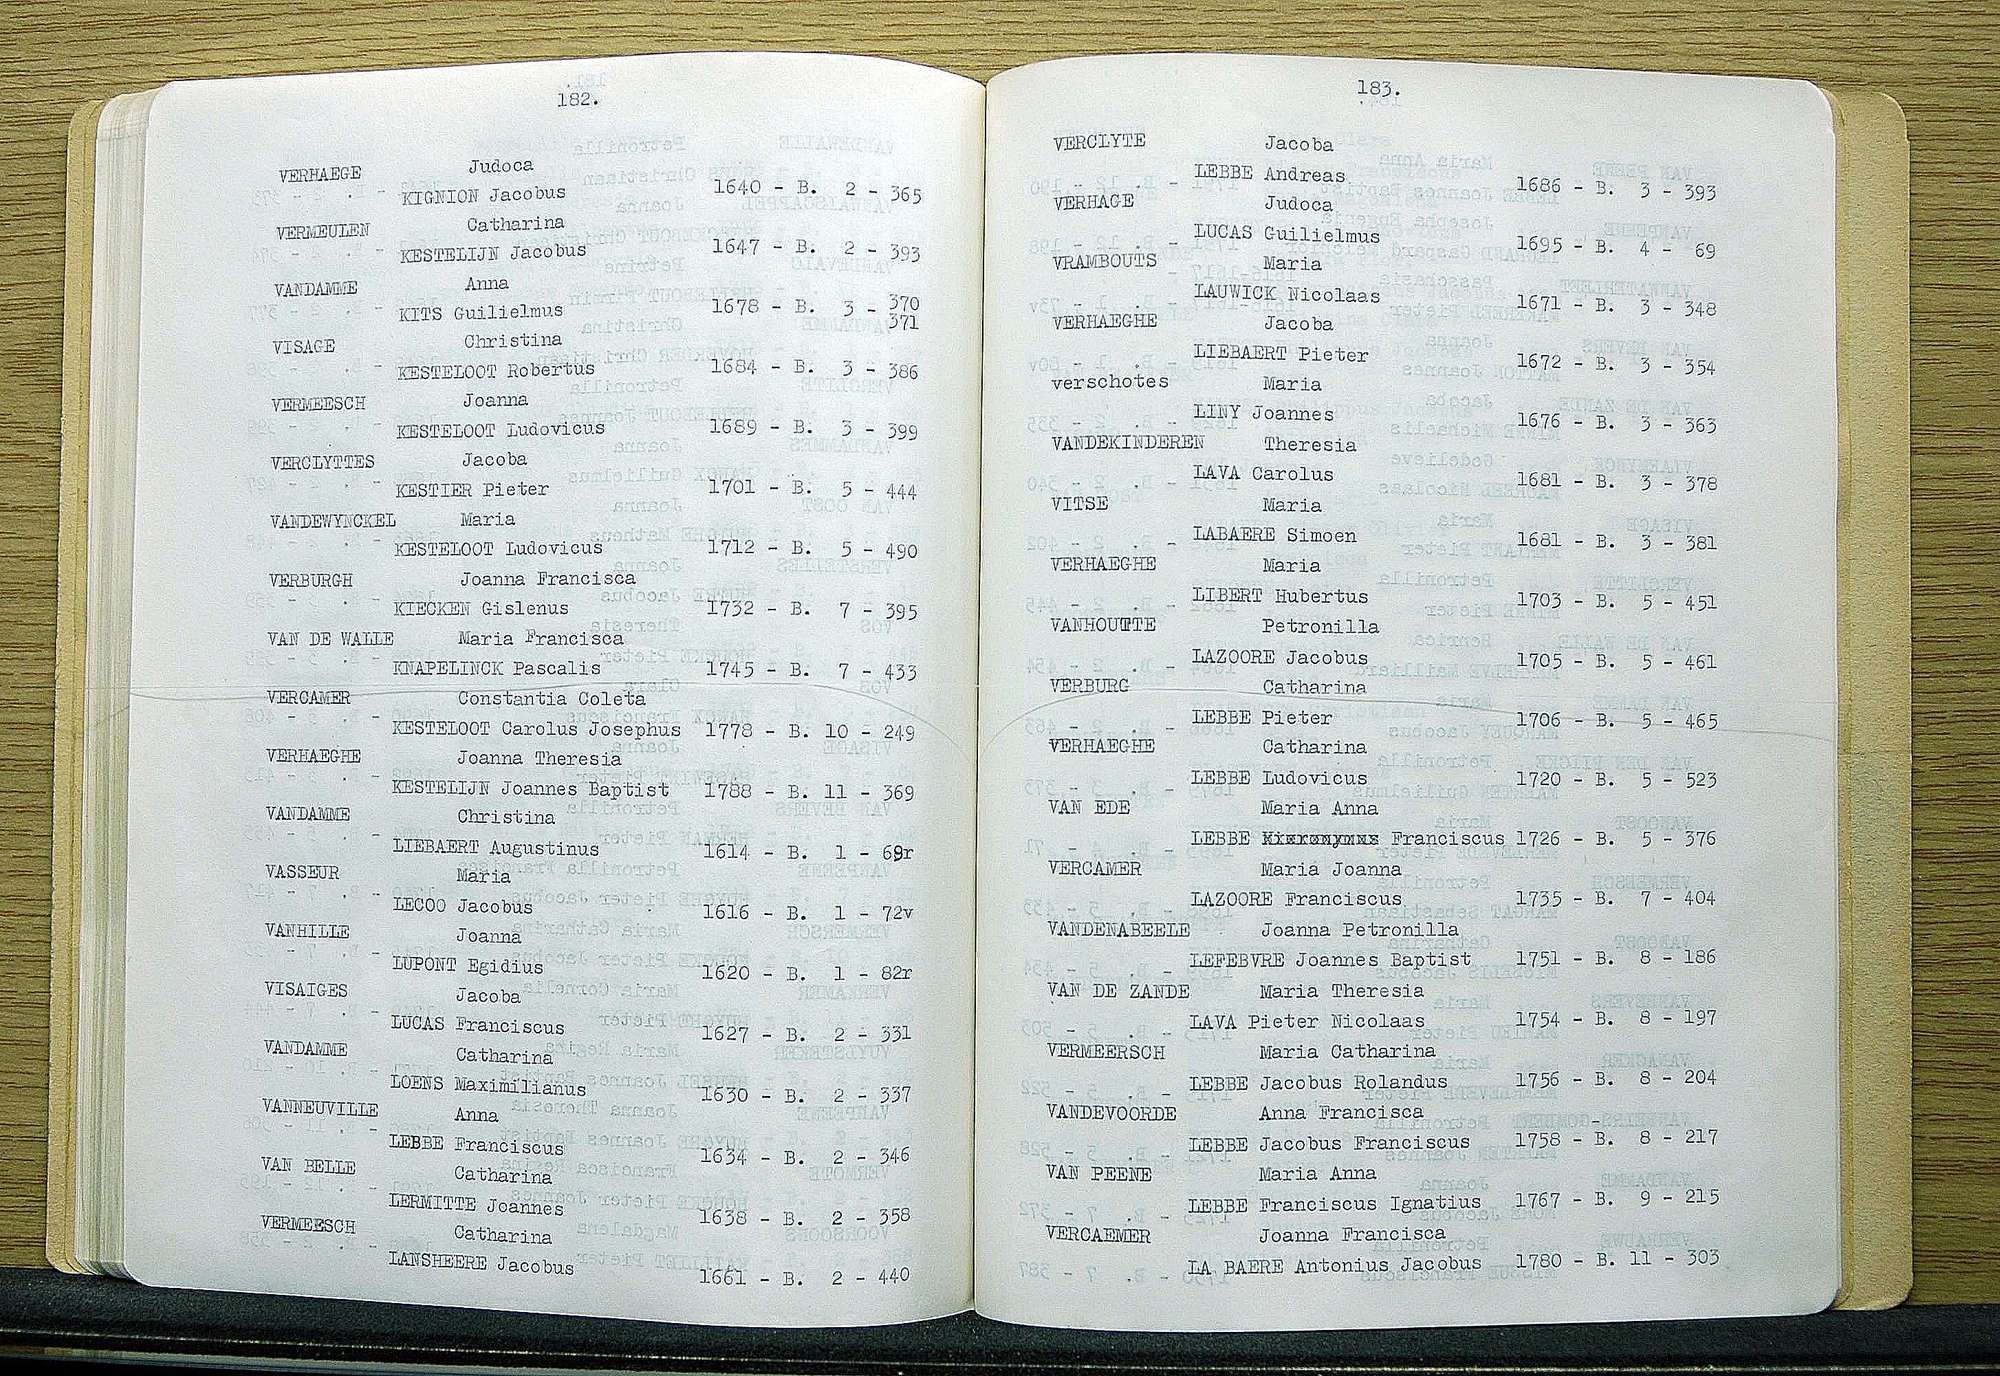 182.
VERHAEGE Judoca
KIGNION Jacobus 1640 - B. 2 - 365
VERMEULEN Catharina
KESTELIJN Jacobus 1647 - B. 2 - 393
VANDAMME Anna
KITS Guilielmus 1678 - B. 3 - 370
371
VISAGE Christina
KESTELOOT Robertus 1684 - B. 3 - 386
VERMEESCH Joanna
KESTELOOT Ludovicus 1689 - B. 3 - 399
VERCLYTTES Jacoba
KESTIER Pieter 1701 - B. 5 - 444
VANDEWYNCKEL Maria
KESTELOOT Ludovicus 1712 - B. 5 - 490
VERBURGH Joanna Francisca
KIECKEN Gislenus 1732 - B. 7 - 395
VAN DE WALLE Maria Francisca
KNAPELINCK Pascalis 1745 - B. 7 - 433
VERCAMER Constantia Coleta
KESTELOOT Carolus Josephus 1778 - B. 10 - 249
VERHAEGHE Joanna Theresia
KESTELIJN Joannes Baptist 1788 - B. 11 - 369
VANDAMME Christina
LIEBAERT Augustinus 1614 - B. 1 - 69r
VASSEUR Maria
LECOO Jacobus 1616 - B. 1 - 72v
VANHILLE Joanna
LUPONT Egidius 1620 - B. 1 - 82r
VISAIGES Jacoba
LUCAS Franciscus 1627 - B. 2 - 331
VANDAMME Catharina
LOENS Maximilianus 1630 - B. 2 - 337
VANNEUVILLE Anna
LEBBE Franciscus 1634 - B. 2 - 346
VAN BELLE Catharina
LERMITTE Joannes 1638 - B. 2 - 358
VERMEESCH Catharina
LANSHEERE Jacobus 1661 - B. 2 - 440
183.
VERCLYTE Jacoba
LEBBE Andreas 1686 - B. 3 - 393
VERHAGE Judoca
LUCAS Guilielmus 1695 - B. 4 - 69
VRAMBOUTS Maria
LAUWICK Nicolaas 1671 - B. 3 - 348
VERHAEGHE Jacoba
LIEBAERT Pieter 1672 - B. 3 - 354
verschotes Maria
LINY Joannes 1676 - B. 3 - 363
VANDEKINDEREN Theresia
LAVA Carolus 1681 - B. 3 - 378
VITSE Maria
LABAERE Simoen 1681 - B. 3 - 381
VERHAEGHE Maria
LIBERT Hubertus 1703 - B. 5 - 451
VANHOUTTE Petronilla
LAZOORE Jacobus 1705 - B. 5 - 461
VERBURG Catharina
LEBBE Pieter 1706 - B. 5 - 465
VERHAEGHE Catharina
LEBBE Ludovicus 1720 - B. 5 - 523
VAN EDE Maria Anna
LEBBE Franciscus 1726 - B. 5 - 376
VERCAMER Maria Joanna
LAZOORE Franciscus 1735 - B. 7 - 404
VANDENABEELE Joanna Petronilla
LEFEBVRE Joannes Baptist 1751 - B. 8 - 186
VAN DE ZANDE Maria Theresia
LAVA Pieter Nicolaas 1754 - B. 8 - 197
VERMEERSCH Maria Catharina
LEBBE Jacobus Rolandus 1756 - B. 8 - 204
VANDEVOORDE Anna Francisca
LEBBE Jacobus Franciscus 1758 - B. 8 - 217
VAN PEENE Maria Anna
LEBBE Franciscus Ignatius 1767 - B. 9 - 215
VERCAEMER Joanna Francisca
LA BAERE Antonius Jacobus 1780 - B. 11 - 303